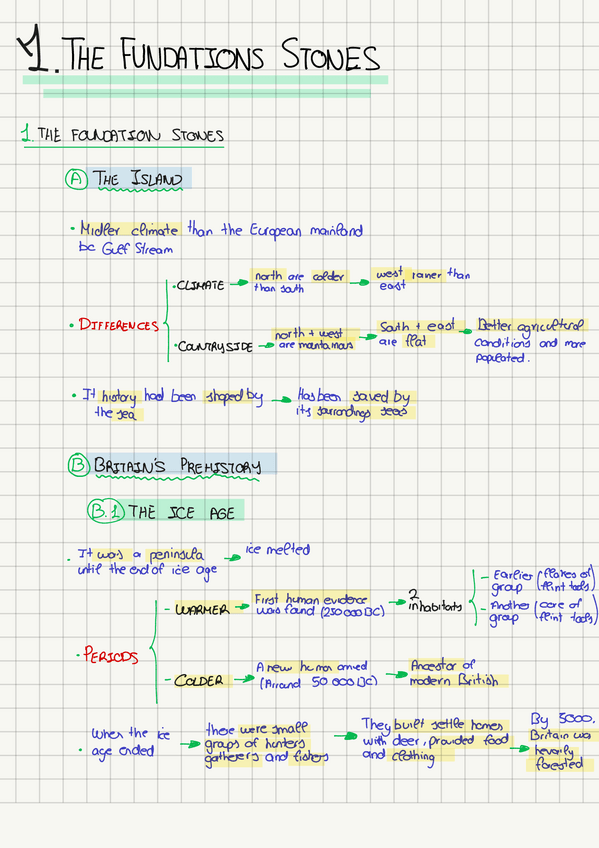 1. THE FUNDATIONS STONES
1. THE FOUNDATION STONES
A THE ISLAND
• Midler climate than the European mainland
bc Gulf Stream
• DIFFERENCES
• CLIMATE → north are colder → west rainer than
than south east
• COUNTRYSIDE → north + west → South + east → Better agricultural
are mountainous are flat conditions and more
populated.
• It history had been shaped by → Has been saved by
the sea its surrondings seas
B BRITAIN'S PREHISTORY
B.1 THE ICE AGE
• It was a peninsula → ice melted
until the end of ice age
• PERIODS
– WARMER → First human evidence → 2
was found (250 000 BC) inhabitants
– Earlier (flakes of
group flint tools)
– Another (core of
group flint tools)
– COLDER → A new human arrived → Ancestor of
(Arround 50 000 BC) modern British
• When the ice → there were small → They built settle homes → By 5000.
age ended groups of hunters with deer, provided food Britain was
gatherers and fishers and clothing heavily
forested